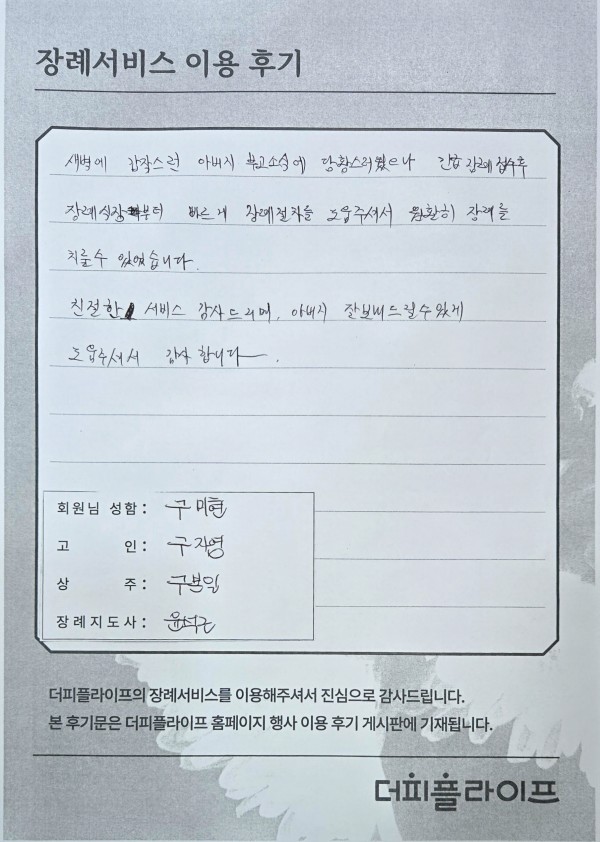 장례서비스 이용 후기
새벽에 갑작스런 아버지 부고소식에 당황스러웠으나 긴급 장례 접수후
장례식장부터 빠르게 장례절차를 도움주셔서 원활히 장례를
치를수 있었습니다.
친절한 서비스 감사드리며, 아버지 잘보내드릴수있게
도움주셔서 감사 합니다.
회원님 성함: 구미현
고 인: 구자영
상 주: 구본일
장례지도사:
더피플라이프의 장례서비스를 이용해주셔서 진심으로 감사드립니다.
본 후기문은 더피플라이프 홈페이지 행사 이용 후기 게시판에 기재됩니다.
더피플라이프